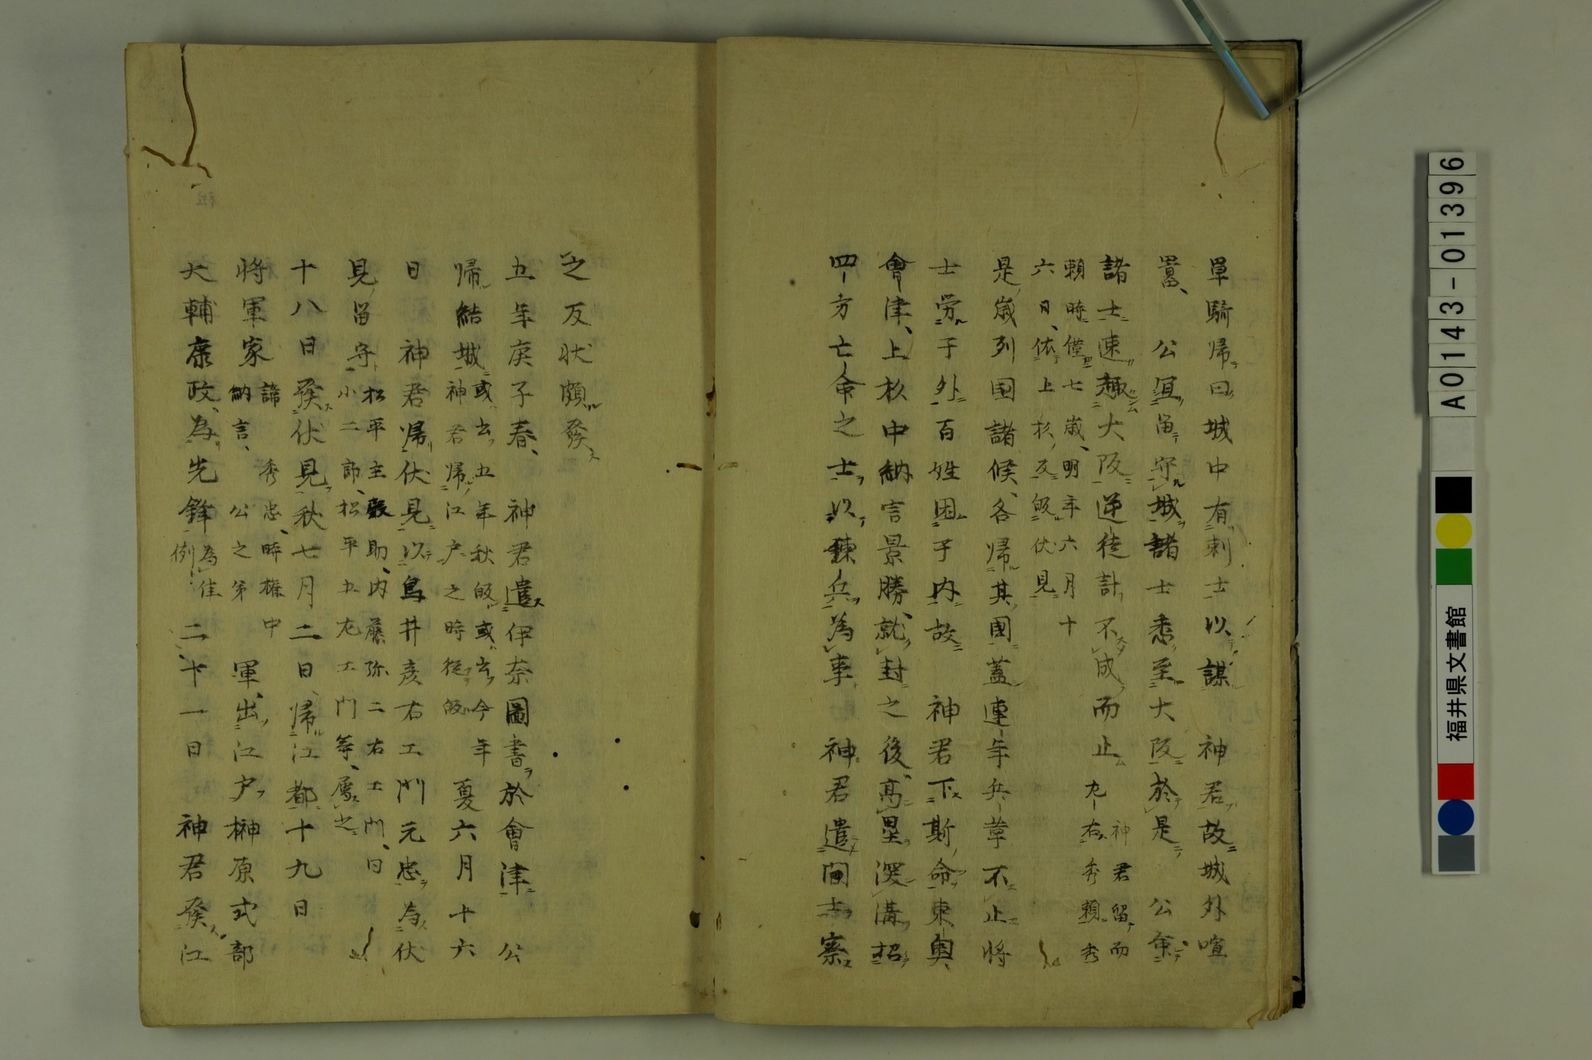 單騎帰曰城中有刺士以謀　神君故城外喧
囂、　公宜留守城諸士悉至大阪於是　公命
諸士速趣大阪逆徒計不成而止神君留而
左右秀頼秀
頼時僅七歳、明年六月十
六日、依上杉反皈伏見
是歳列国諸候、各帰其國蓋連年兵革不止將
士労于外百姓困于内故　神君下斯命東奥
會津、上杉中納言景勝、就封之後、高塁深溝招
四方亡命之士以錬兵為事　神君遣間士察
之反状頗發
五年庚子春、　神君遣伊奈圖書於會津　公
帰結城或云、五年秋皈、或云、今年
神君帰江戸之時従皈夏六月十六
日　神君帰伏見以鳥井彦右エ門元忠為伏
見留守松平主殿助、内藤弥二右エ門、曰
小二郎、松平五左エ門等、屬之
十八日發伏見秋七月二日、帰江都十九日
將軍家諱　秀忠、時権中
納言、　公之弟　軍、出江戸榊原式部
大輔康政、為先鋒為佳
例　二十一日　神君發江
A0143-01396
福井県文書館